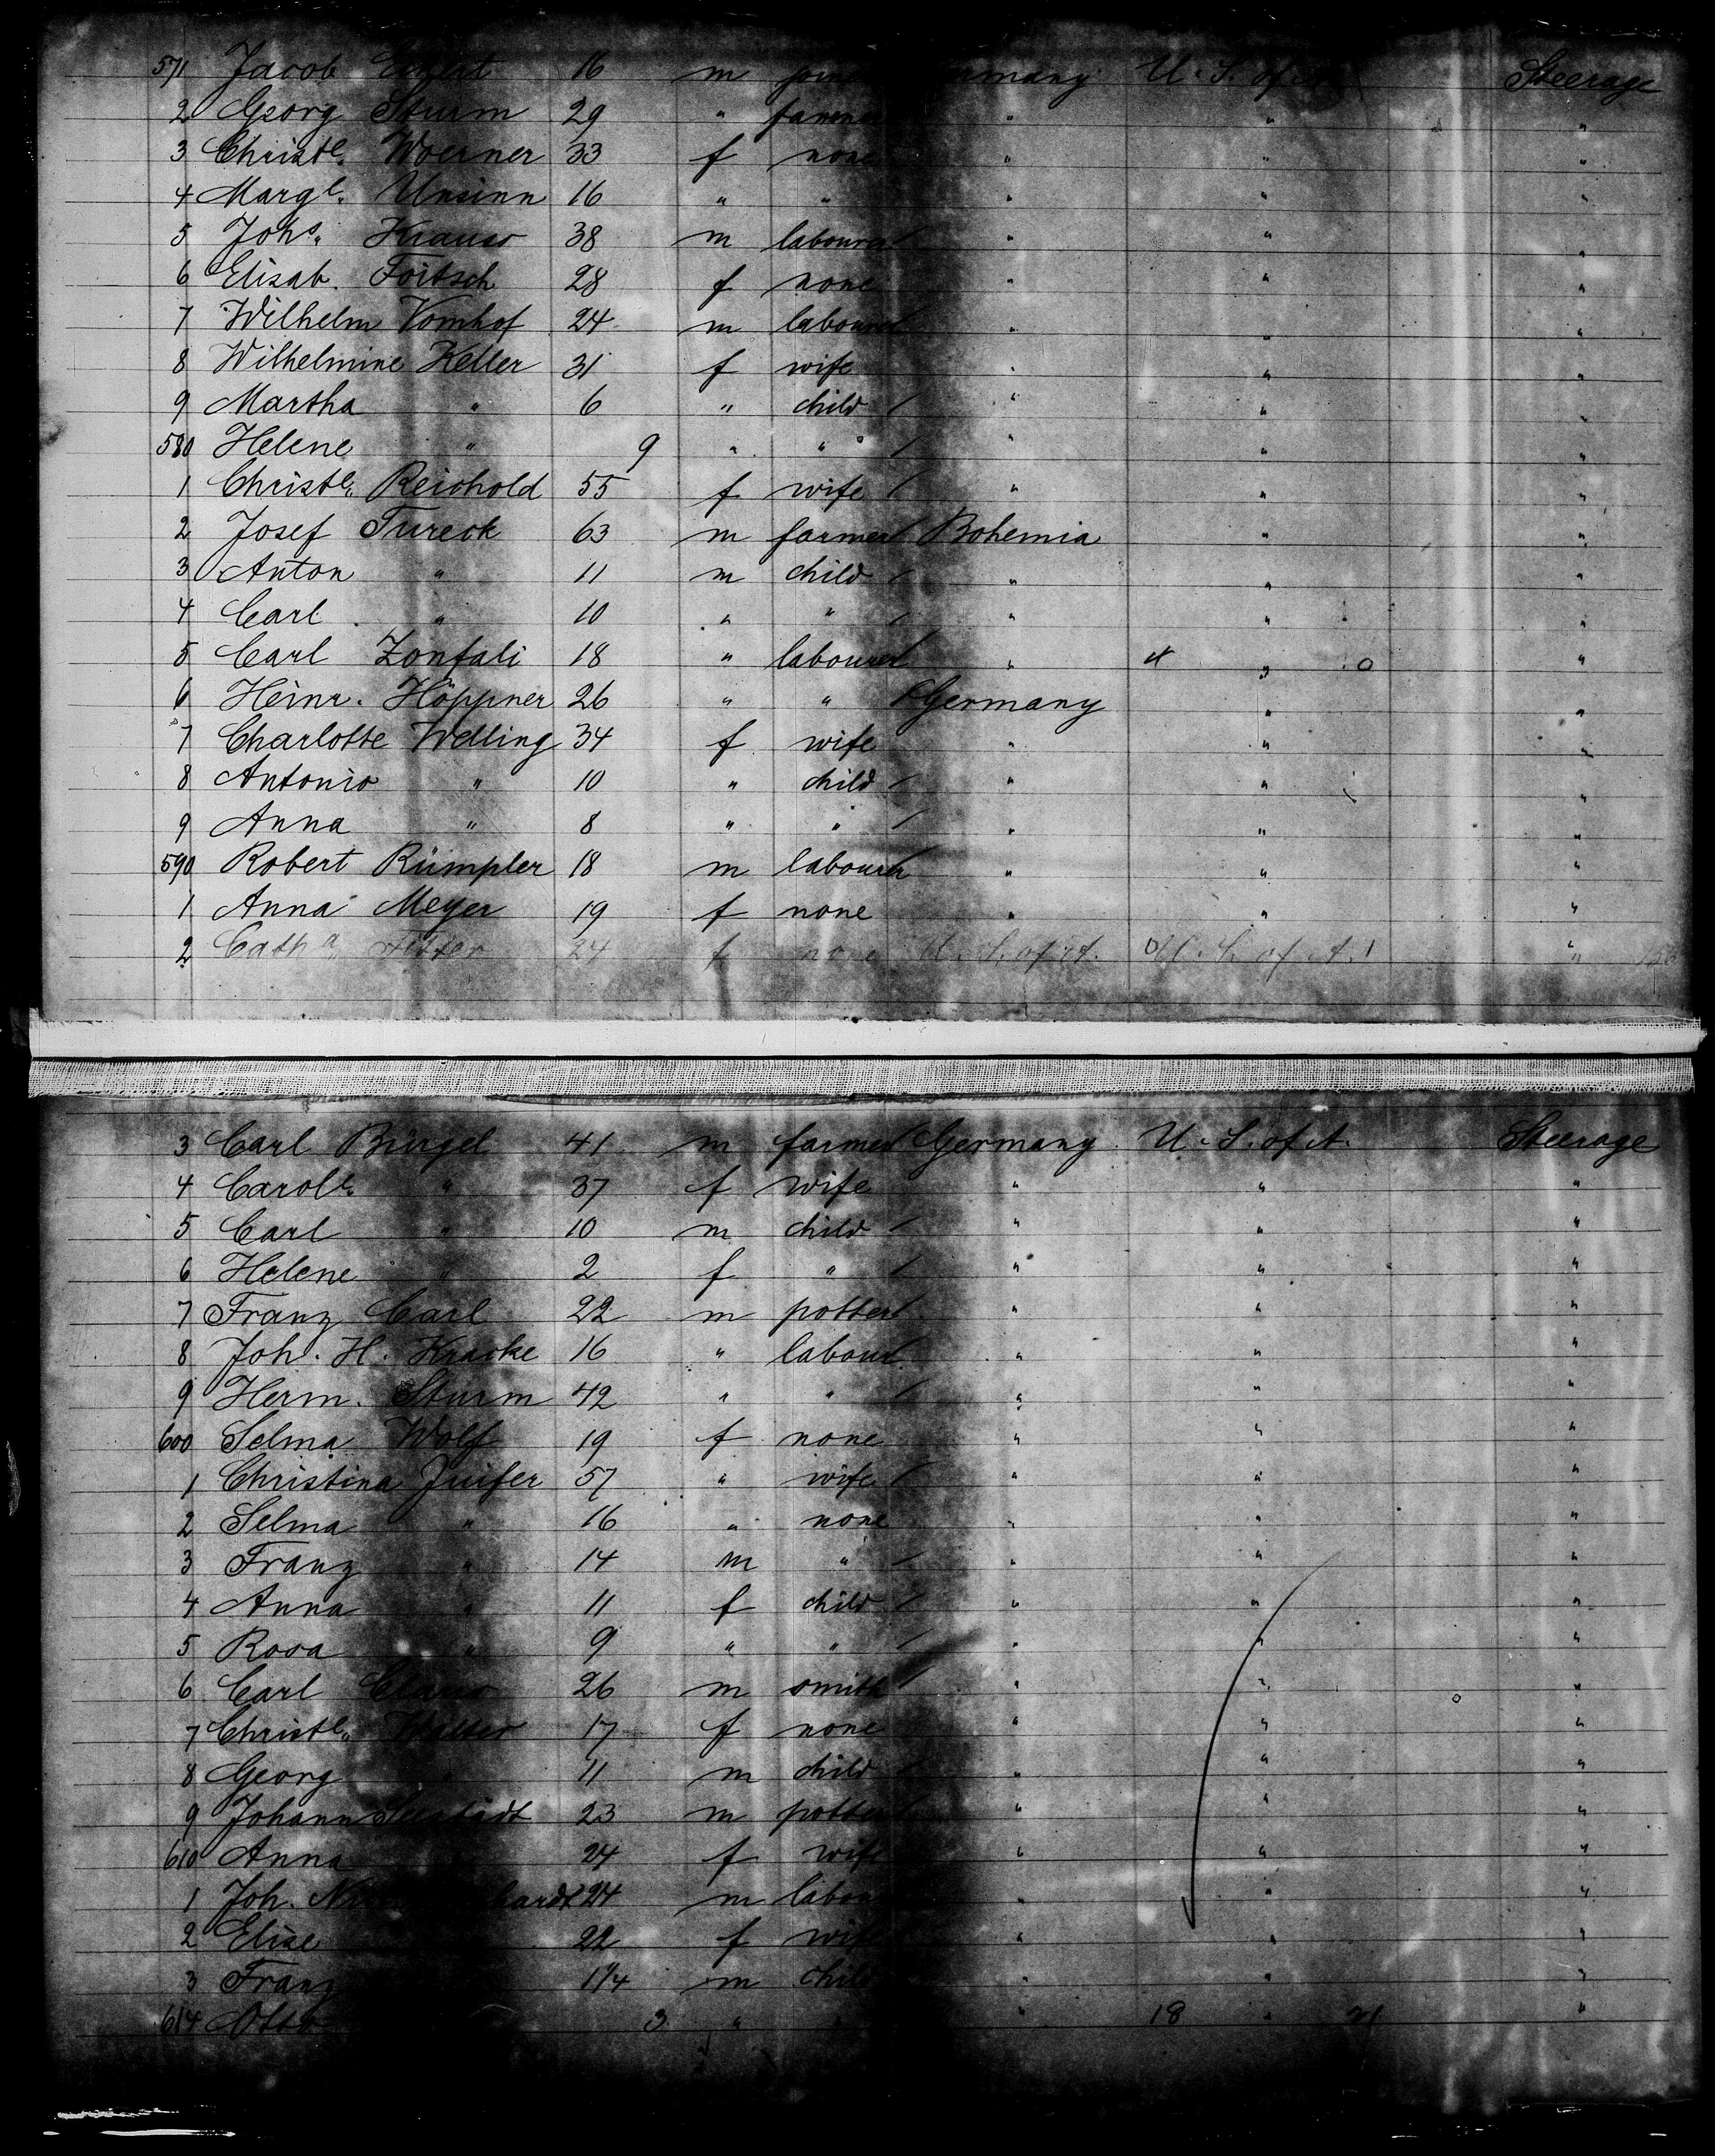 571 Jacob 16 m Germany U. S. of A. Steerage
2 Georg Sturm 29 " farmer " " "
3 Christe. Woerner 33 f none " " "
4 Marge. Unsinn 16 " " " " "
5 Johs. Krauss 38 m labourer " " "
6 Elisab. Foitsch 28 f none " " "
7 Wilhelm Vomhof 24 m labourer " " "
8 Wilhelmine Keller 31 f wife " " "
9 Martha " 6 " child " " "
580 Helene " 9 " " " " "
1 Christe. Reichold 55 f wife " " "
2 Josef Tureck 63 m farmer Bohemia " "
3 Anton " 11 m child " " "
4 Carl " 10 " " " " "
5 Carl Zonfali 18 " labourer " 4 " 0 "
6 Heinr. Höppner 26 " " Germany " "
7 Charlotte Welling 34 f wife " " "
8 Antonio " 10 " child " " "
9 Anna " 8 " " " " "
590 Robert Rümpler 18 m labourer " " "
1 Anna Meyer 19 f none " " "
2 Catha. Fetter 24 f none U. S. of A. U. S. of A. "
3 Carl Bürgel 41 m farmer Germany U. S. of A. Steerage
4 Carole. " 37 f wife " " "
5 Carl " 10 m child " " "
6 Helene " 2 f " " " "
7 Franz Carl 22 m potter " " "
8 Joh. H. Kracke 16 " labour " " "
9 Herm. Sturm 42 " " " " "
600 Selma Wolf 19 f none " " "
1 Christina Juifer 57 " wife " " "
2 Selma " 16 " none " " "
3 Franz " 14 m " " " "
4 Anna " 11 f child " " "
5 Rosa " 9 " " " " "
6 Carl Claus 26 m smith " " "
7 Christe. Walter 17 f none " " "
8 Georg " 11 m child " " "
9 Johann 23 m potter " " "
610 Anna 24 f wife " " "
1 Joh. 24 m labour " " "
2 Elise 22 f wife " " "
3 Franz 1 1/4 m child " " "
614 Otto 3 " " " 18 " 21 "